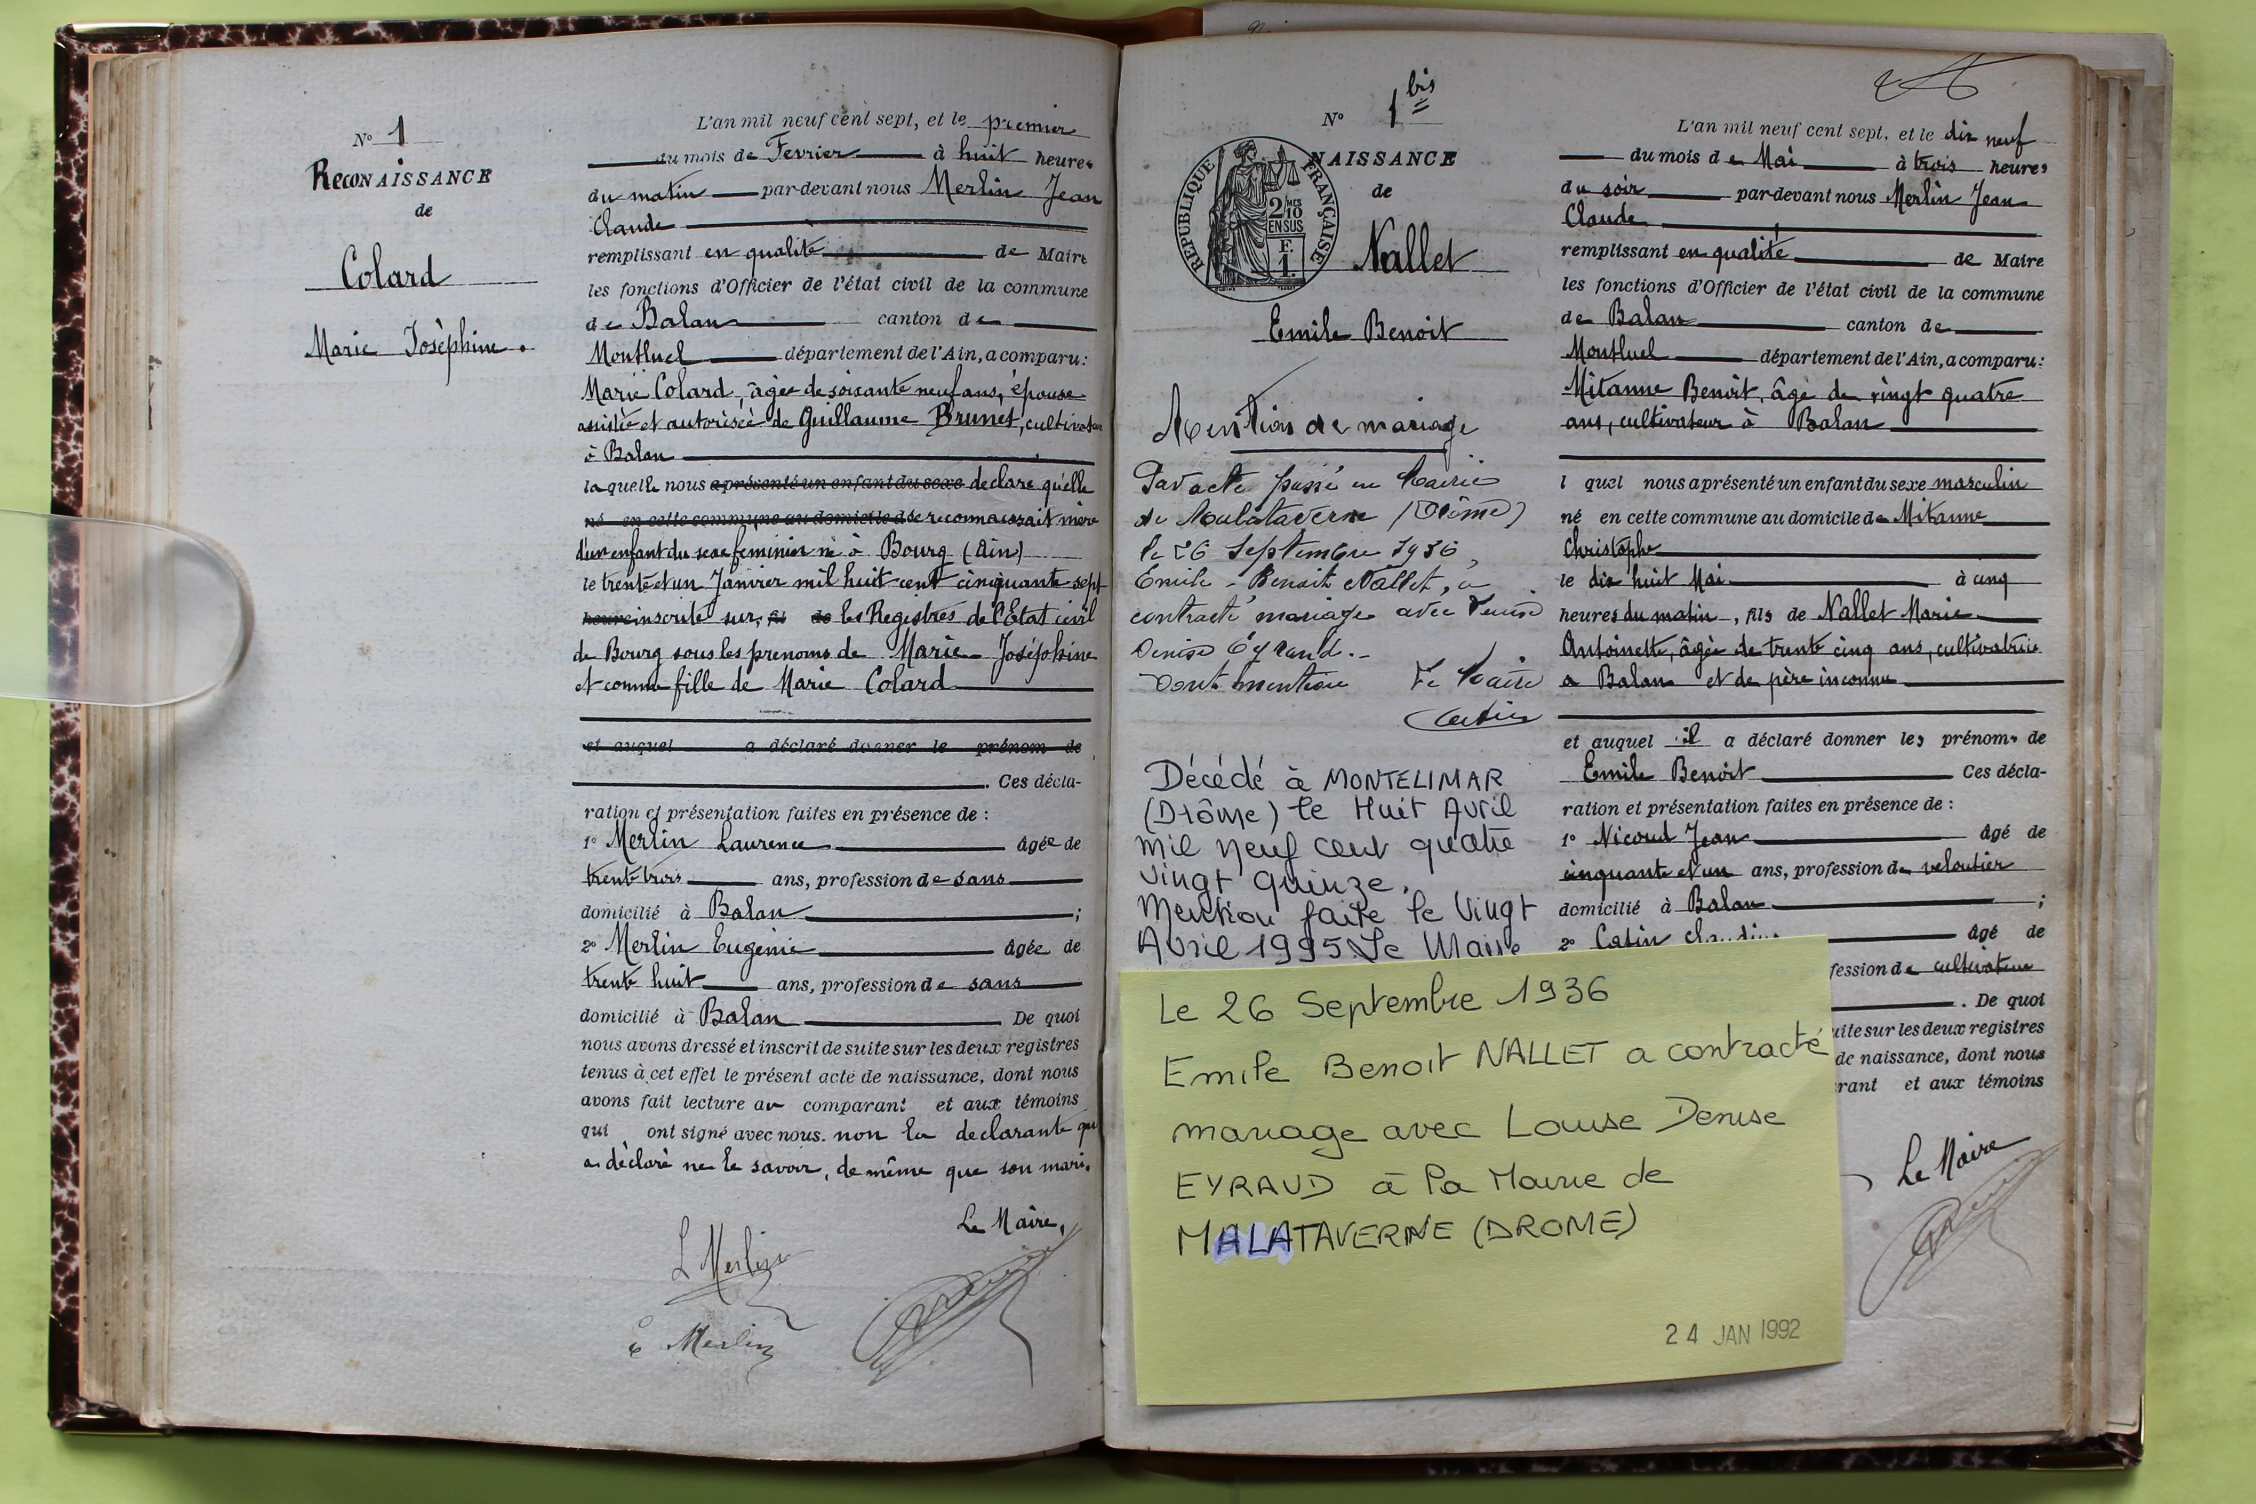 N° 1
RECONAISSANCE
de
Colard
Marie Josèphine.
L'an mil neuf cent sept, et le premier
du mois de Fevrier à huit heures
du matin par-devant nous Merlin Jean
Claude
remplissant en qualité de Maire
les fonctions d'Officier de l'état civil de la commune
de Balan canton de
Montluel département de l'Ain, a comparu:
Marie Colard, âgée de soixante neuf ans, épouse
assistée et autorisée de Guillaume Brunet, cultivateur
à Balan
laquelle nous a présenté un enfant du sexe declare qu'elle
né en cette commune au domicile d se reconnaissait mère
d'un enfant du sexe feminin né à Bourg (Ain)
le trente et un Janvier mil huit cent cinquante sept
heure inscrite sur, fil de les Registres de l'Etat civil
de Bourg sous les prenoms de Marie-Joséphine
et comme fille de Marie Colard
et auquel a déclaré donner le prénom de
. Ces décla-
ration et présentation faites en présence de :
1° Merlin Laurence âgée de
trente trois ans, profession de sans
domicilié à Balan ;
2° Merlin Eugénie âgée de
trente huit ans, profession de sans
domicilié à Balan De quoi
nous avons dressé et inscrit de suite sur les deux registres
tenus à cet effet le présent acte de naissance, dont nous
avons fait lecture au comparant et aux témoins
qui ont signé avec nous. non la declarante qui
a déclaré ne le savoir, de même que son mari.
Le Maire,
L Merlin
e Merlin
N° 1 bis
NAISSANCE
de
RÉPUBLIQUE FRANÇAISE
2 MES
10
EN SUS
F.
1.
Nallet
Emile Benoit
Mention de mariage
Par acte passé en Mairie
de Malataverne (Drôme)
le 26 Septembre 1936,
Emile-Benoit Nallet, a
contracté mariage avec Louise
Denise Eyraud.-
Dont mention Le Maire
Décédé à MONTELIMAR
(Drôme) le Huit Avril
mil neuf cent quatre
vingt quinze.
Mention faite le Vingt
Avril 1995. Le Maire
L'an mil neuf cent sept, et le dix neuf
du mois de Mai à trois heures
du soir par-devant nous Merlin Jean
Claude
remplissant en qualité de Maire
les fonctions d'Officier de l'état civil de la commune
de Balan canton de
Montluel département de l'Ain, a comparu:
Mitanne Benoit, âgé de vingt quatre
ans, cultivateur à Balan
l quel nous a présenté un enfant du sexe masculin
né en cette commune au domicile de Mitanne
Christophe
le dix huit Mai à cinq
heures du matin, fils de Nallet Marie
Antoinette, âgée de trente cinq ans, cultivatrice
a Balan et de père inconnu
et auquel il a déclaré donner les prénoms de
Emile Benoit Ces décla-
ration et présentation faites en présence de :
1° Nicoud Jean âgé de
cinquante et un ans, profession de veloutier
domicilié à Balan ;
2° Catin Claudius âgé de
fession de cultivateur
. De quoi
uite sur les deux registres
de naissance, dont nous
rant et aux témoins
Le Maire
Le 26 Septembre 1936
Emile Benoit NALLET a contracté
mariage avec Louise Denise
EYRAUD à la Mairie de
MALATAVERNE (DROME)
24 JAN 1992